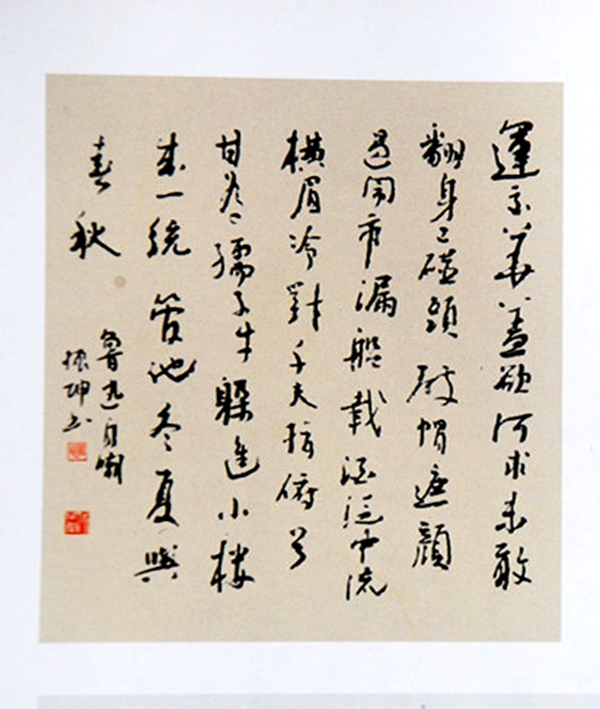 運交華蓋欲何求未敢
翻身已碰頭破帽遮顏
過鬧市漏船載酒泛中流
橫眉冷對千夫指俯首
甘為孺子牛躲進小樓
成一統管他冬夏與
春秋
魯迅自嘲
振坤书